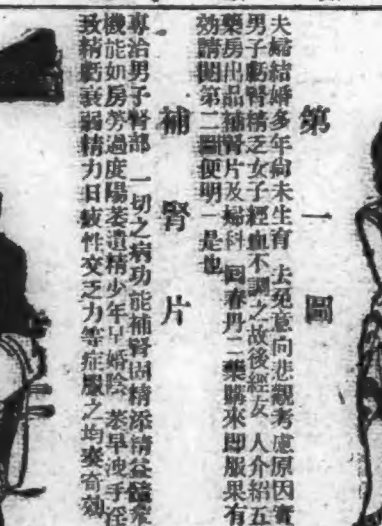 第一圖
夫婦結婚多年尙未生育 去免意向悲觀考慮原因實
男子虧腎精乏女子經血不調之故後經友 人介紹五
藥房出品補腎片及婦科 回春丹二藥購來即服果有
効請閱第二圖便明一是也
補腎片
專治男子腎部 一切之病功能補腎固精添精益髓
機能如房勞過度陽萎遺精少年早婚陰 萎早洩手淫
致精虧衰弱精力日疲性交乏力等症服之均奏奇効